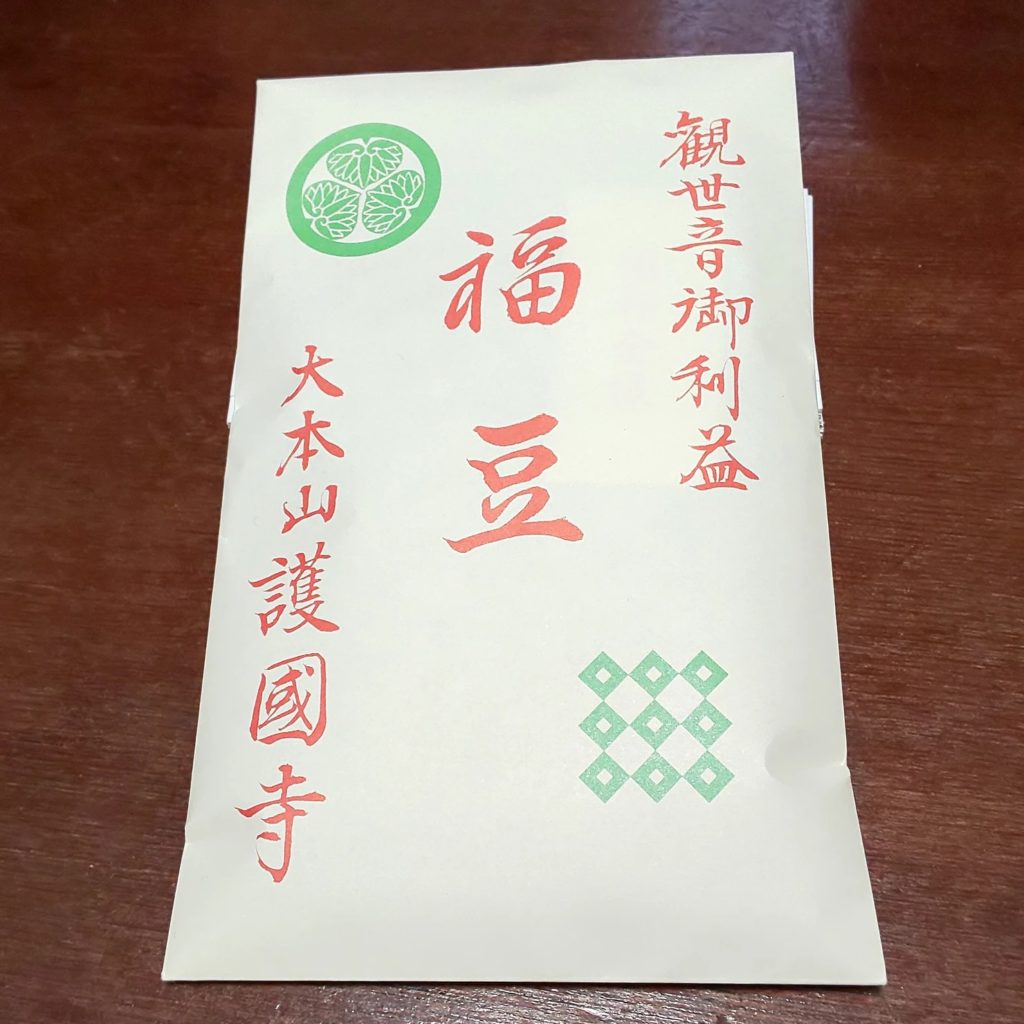 観世音御利益
福豆
大本山護國寺